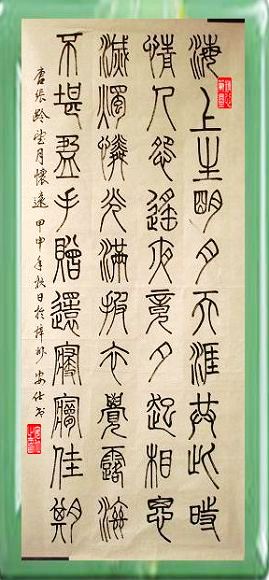 海上生明月天涯共此時
情人怨遙夜竟夕起相思
滅燭憐光滿披衣覺露滋
不堪盈手贈還寢夢佳期
唐張齡望月懷遠 甲申年秋日於梓 安仕书